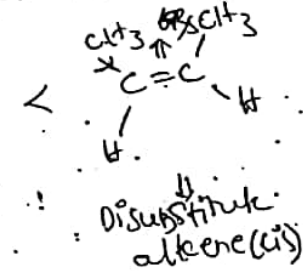 CH3 CH3
C=C
H H
Disubstitute
alkene (cis)